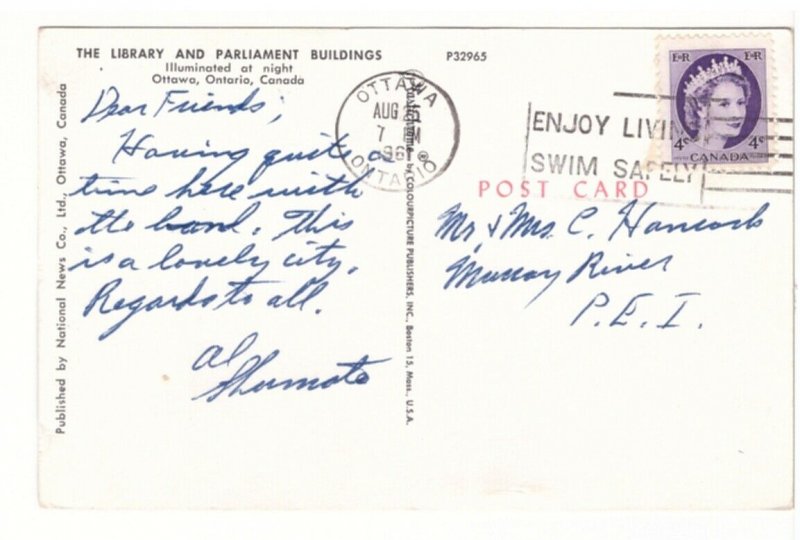 THE LIBRARY AND PARLIAMENT BUILDINGS
Illuminated at night
Ottawa, Ontario, Canada
P32965
Dear Friends,
Having quite a
time here with
the band. This
is a lovely city.
Regards to all.
Al
Published by National News Co., Ltd., Ottawa, Canada
by COLOURPICTURE PUBLISHERS, INC., Boston 15, Mass., U.S.A.
OTTAWA
AUG
7 M
196
ONTARIO
ENJOY LIVIN
SWIM SAFELY
E R E R
4c 4c
CANADA
POST CARD
Mr. & Mrs. C. Hancock
Murray River
P.E.I.